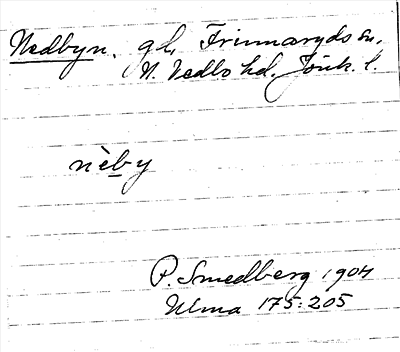 Nedbyn. gd, Frinnaryds sn,
N. Vedbo hd. Jönk. l.
nèby
P. Smedberg 1904
Ulma 175:205